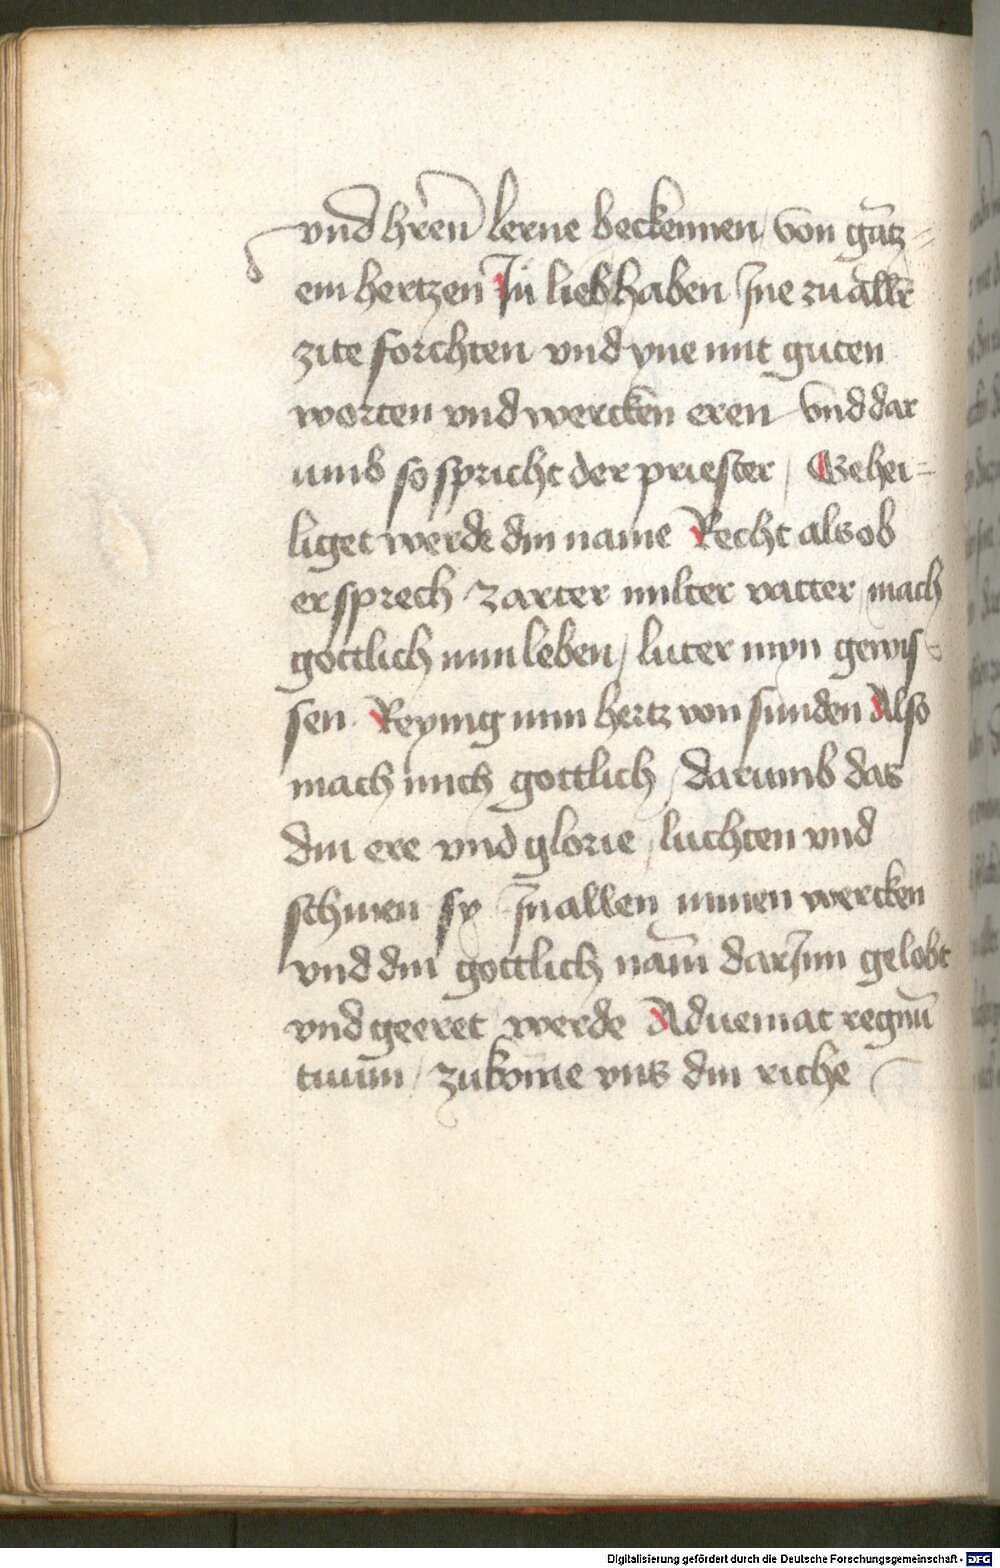 vnd hʼren lerne beckennen / von gātz=
em hertzen Jn lieb haben Jne zu allē
zite forchten vnd yne mit guten
worten vnd wercken eren vnd dar
umb so spricht der priester / Gehei=
liget werde din name Recht als ob
er sprech zarter milter vatter / mach
gottlich min leben / luter myn gewis
sen Reynig min hertz von sunden Also
mach mich gottlich / darumb das
din ere vnd glorie / luchten vnd
schinen sy Jn allen minen wercken
vnd din gottlich nām dar Jnn gelobt
vnd geeret werde Adueniat regnū
tuum / zukōme vns din riche
Digitalisierung gefördert durch die Deutsche Forschungsgemeinschaft - DFG